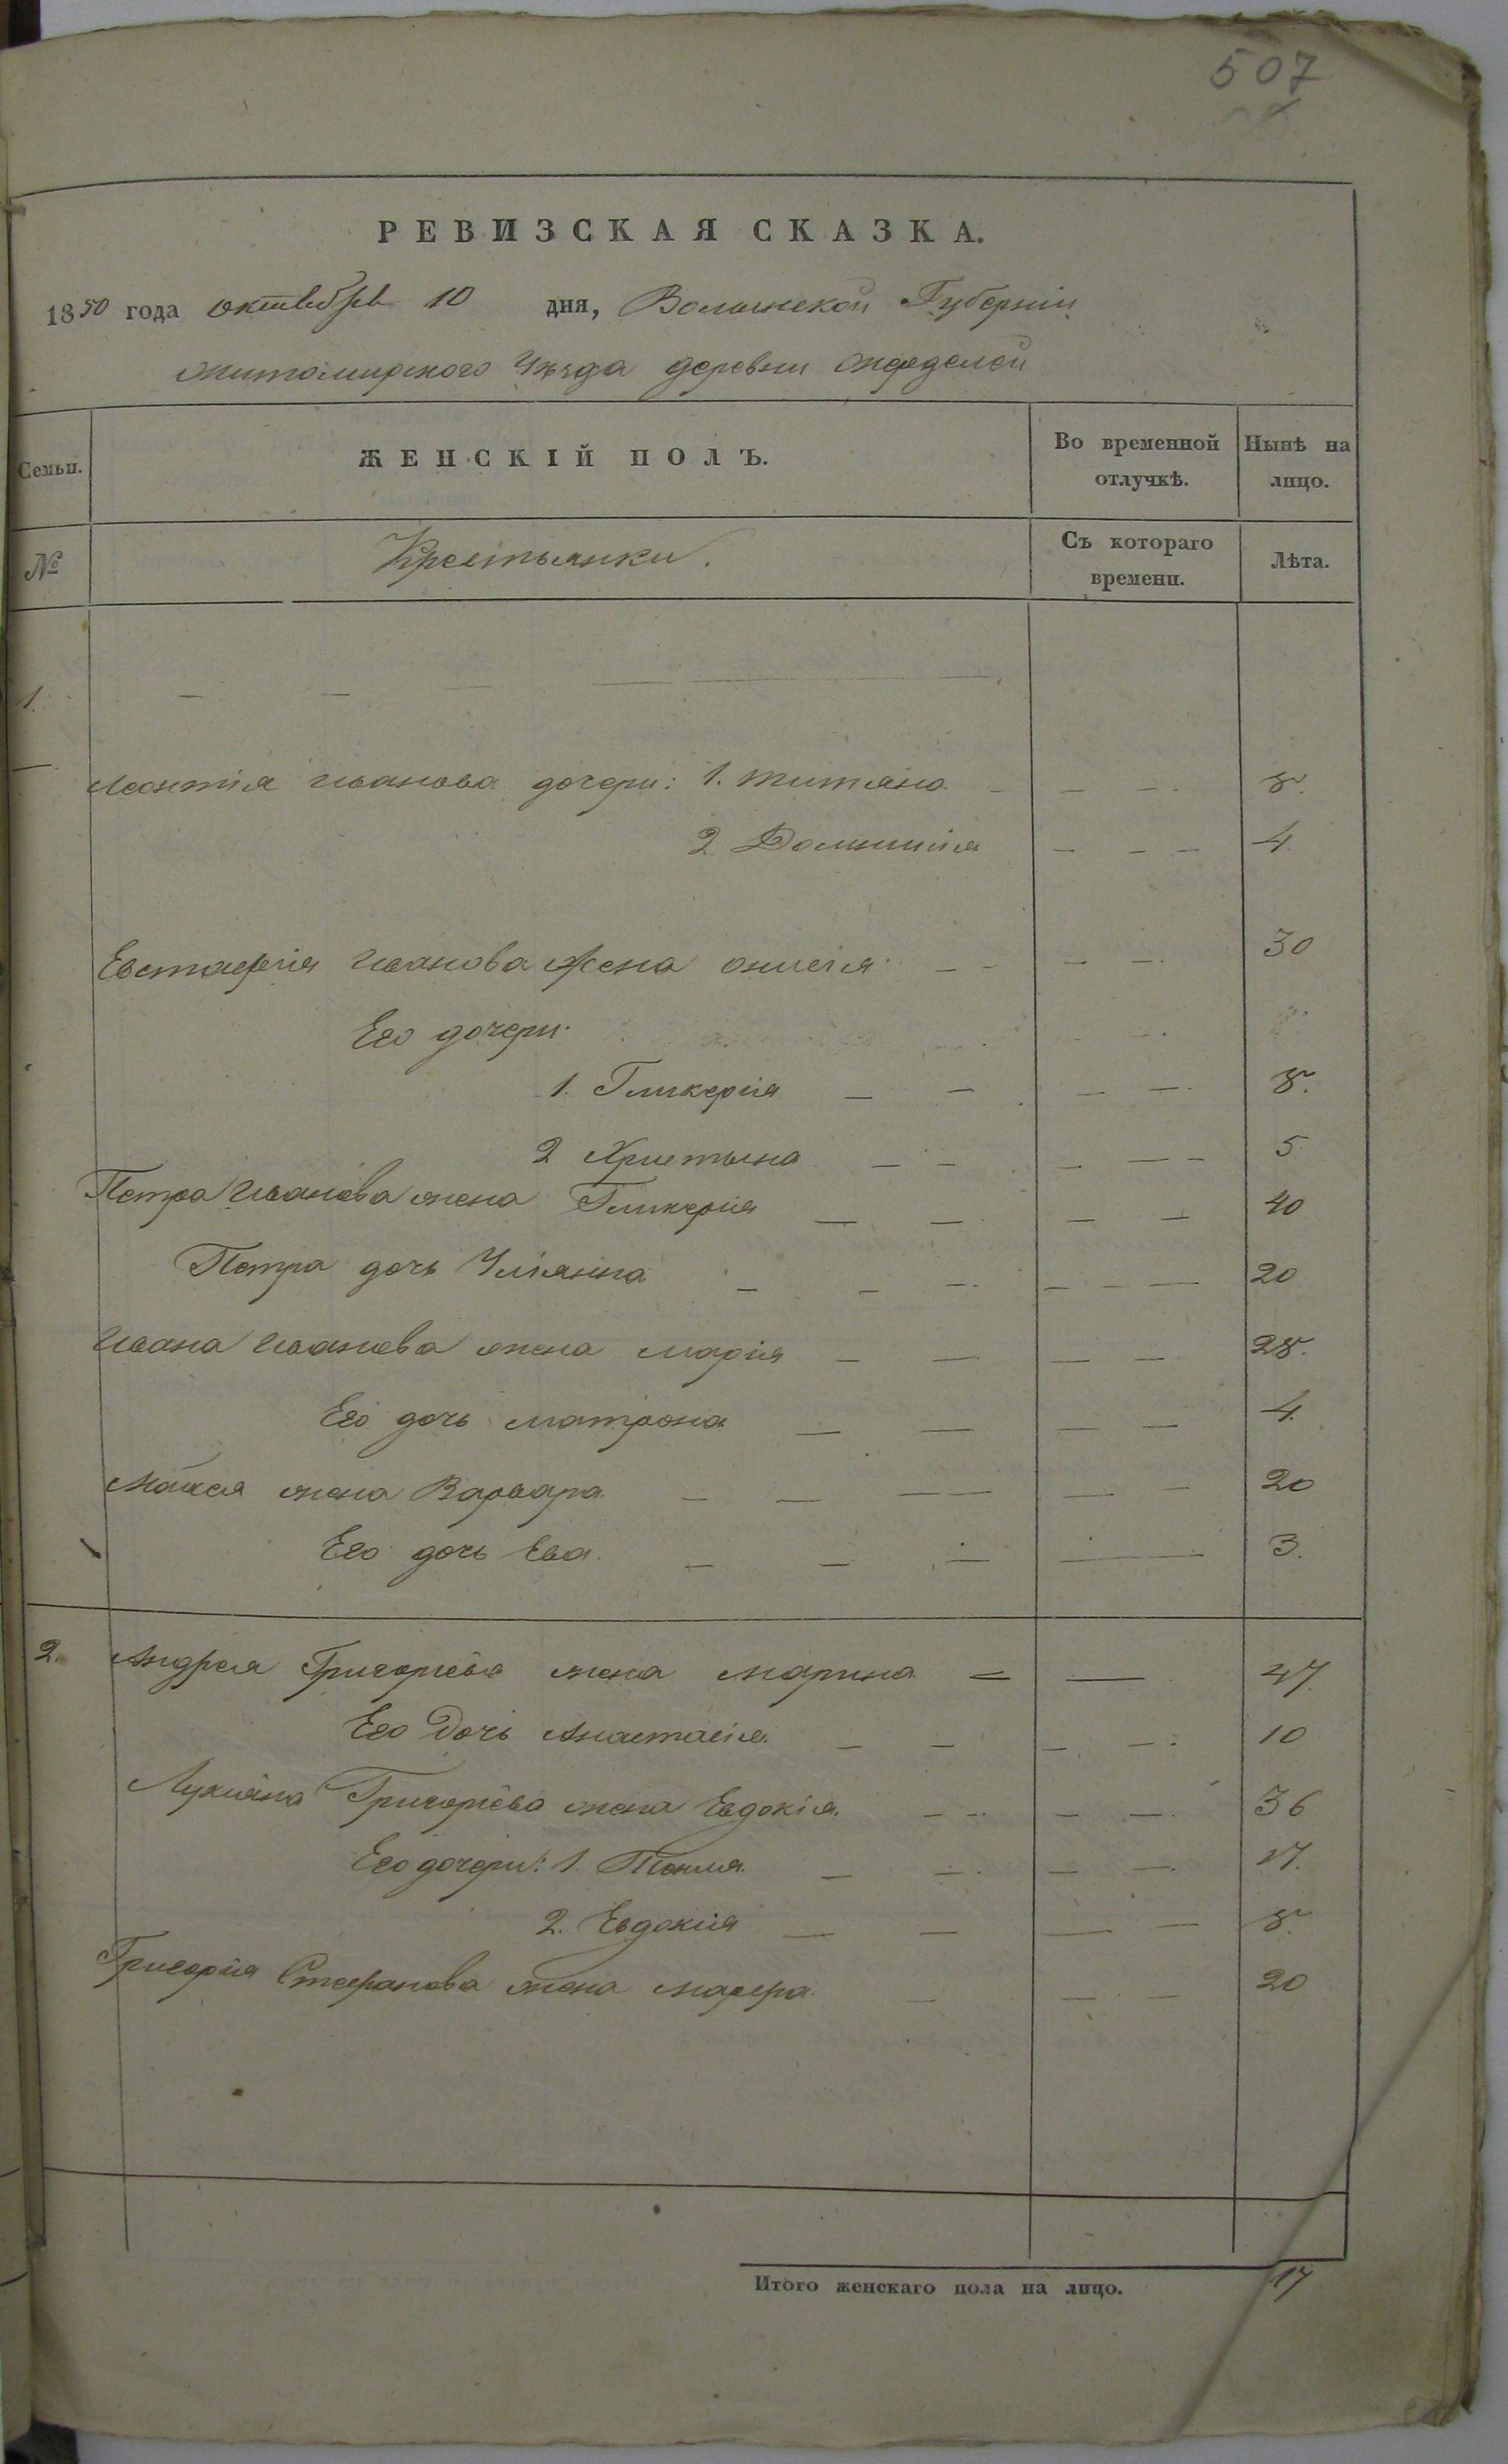 507
РЕВИЗСКАЯ СКАЗКА.
1850 года октября 10 дня, Волынской Губерніи
житомирского Уѣзда деревни
Семьи. ЖЕНСКІЙ ПОЛЪ. Во временной отлучкѣ. Нынѣ на лицо.
№ Крестьянки. Съ котораго времени. Лѣта.
1.
Леонтія Иванова дочери: 1. Титяна 8.
2 Домникія 4.
Евстафія Иванова Жена 30
Его дочери
1. Гликерія 8.
2 Христына 5
Петра Иванова жена Гликерія 40
Петра дочь Уліянна 20
Ивана Иванова жена марія 28.
Его дочь матрона 4.
жена Варвара 20
Его дочь Ева. 3.
2. Андрея Григоріева жена марина 47.
Его Дочь Анастасія. 10
Лукіяна Григоріева жена Евдокія. 36
Его дочери: 1. 17.
2. Евдокія 8.
Григорія Стефанова жена 20
Итого женскаго пола на лицо. 17